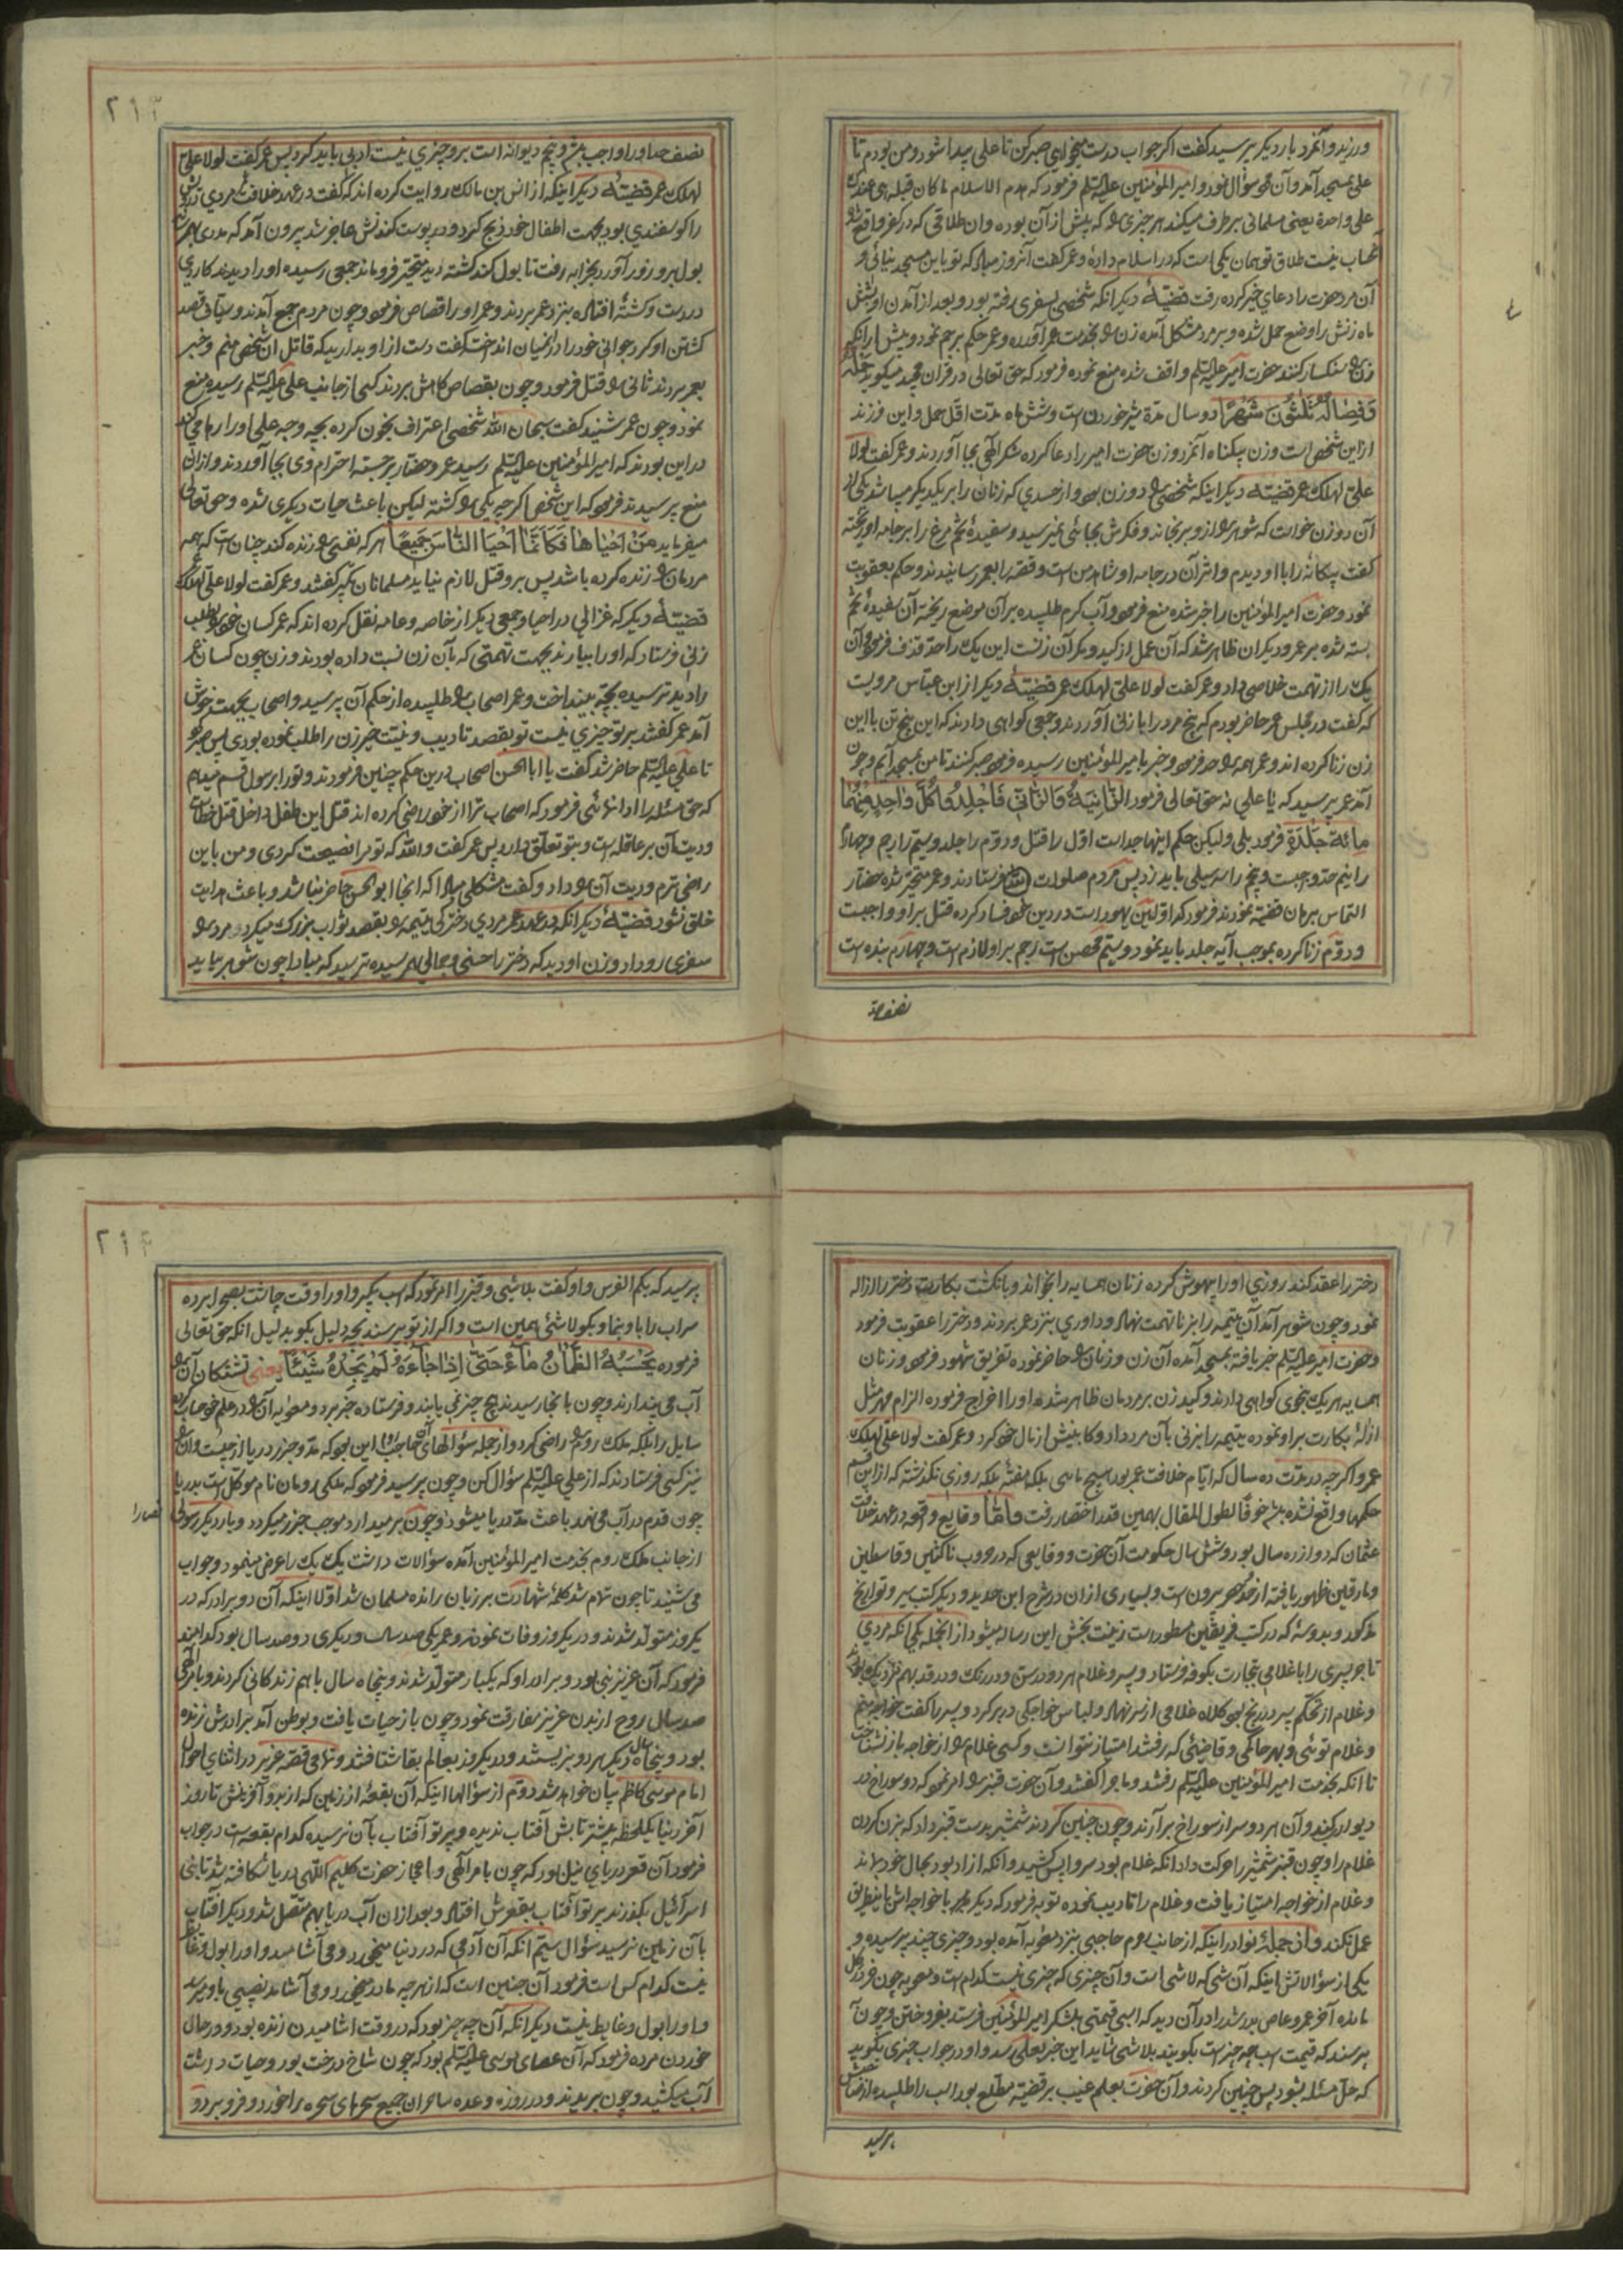 ورزند و آنمرد بار دیگر پرسید گفت اگر جواب درست میخواهی صبر کن تا علی پیدا شود و من بودم تا
علی بمسجد آمد و آن سؤال نمود و امیر المؤمنین علیه السلم فرمود که هدم الاسلام ما کان قبله هی عندک
علی واحدة یعنی مسلمانی بر طرف میکند هر چیزی که پیش از آن بوده و ان طلاقی که در کفر واقع شده
بحساب نیست طلاق تو همان یکی است که در اسلام دادهٔ و عمر گفت آنروز مباد که تو باین مسجد نیائی و
آن مرد حضرت را دعای خیر کرده رفت قضیّهٔ دیگر انکه شخصی بسفری رفته بود و بعد از آمدن او بشش
ماه زنش را وضع حمل شده و بر مرد مشکل آمده زن بخدمت عمر آورده و عمر حکم برجم نمود و پیش از انکه
زن سنکسار کنند حضرت امیر علیه السلم واقف شده منع نموده فرمود که حق تعالی در قران مجید میگوید حمله
و فصاله ثلثون شهرا دو سال مدّة شیر خوردن است و شش ماه مدّت اقل حمل و این فرزند
از این شخص است و زن بیکناه آنمرد و زن حضرت امیر را دعا کرده شکر الهی بجا آوردند و عمر گفت لولا
علی لهلک عمر قضیّهٔ دیگر اینکه شخصی دو زن بود و از حسدی که زنان را بر یکدیگر میباشد یکی از
آن دو زن خواست که شوهر از و برنجاند و فکرش بجائی نمیرسید و سفیدهٔ تخم مرغ را بر جامه او ریخته
گفت بیکانه را با او دیدم و اثر آن در جامه او شاهد من است و قصه را بعمر رسانیدند و حکم بعقوبت
نمود و حضرت امیر المؤمنین را خبر شده منع فرمود و آب گرم طلبیده بر آن موضع ریخته آن سفیدهٔ تخم
بسته شده بر عمر و دیگران ظاهر شد که آن عمل از کید و مکر آن زنست این یک را حدّ قذف فرمود و آن
یک را از تهمت خلاصی داد و عمر گفت لولا علیّ لهلک عمر قضیّهٔ دیگر از ابن عبّاس مرویست
که گفت در مجلس عمر حاضر بودم که پنج مرد را با زنی آوردند و جمعی گواهی دادند که این پنج تن با این
زن زنا کرده اند و عمر همه را حد فرمود و خبر بامیر المؤمنین رسیده فرمود صبر کنند تا من بمسجد آیم و چون
آمد عمر پرسید که یا علی نه حق تعالی فرمود الزّانیة و الزّانی فاجلدوا کلّ واحد منهما
مائة جلدة فرمود بلی و لیکن حکم اینها جداست اول را قتل و دوّم را جلد و سیّم را رجم و چهارم
را نیم حد واجبست و پنجم را سه سیلی باید زد پس مردم صلوات فرستادند و عمر متحیر شده حضار
التماس برهان قضیّه نمودند فرمود که اوّلین یهود است در دین خود فساد کرده قتل بر او واجبست
و دوّم زنا کرده بموجب آیه جلد باید نمود و سیّم محصن است رجم بر او لازم است و چهارم بنده است
نصف حد
۲۱۳
نصف حد او را واجب باشد و پنجم دیوانه است بر و چیزی نیست ادبی باید کرد پس عمر گفت لولا علی
لهلک عمر قضیّهٔ دیگر اینکه از انس بن مالک روایت کرده اند که گفت در عهد خلافت عمر مردی
را گوسفندی بود بجهت اطفال خود ذبح کرد و در پوست کندنش عاجز شد بیرون آمد که مددی
بول برو زور آورد بخرابه رفت تا بول کند کشته دید متحیّر فرو ماند جمعی رسیده او را دیدند کاردی
در دست و کشته افتاده بنزد عمر بردند و عمر او را قصاص فرمود و چون مردم جمع آمدند و سیّاف قصد
کشتن او کرد جوانی خود را در آنمیان انداخت گفت دست از او بدارید که قاتل ان شخص منم و خبر
بعمر بردند ثانی را قتل فرمود و چون بقصاص کاهش بردند کسی از جانب علی علیه السلم رسیده منع
نمود و چون عمر شنید گفت سبحان الله شخصی اعتراف بخون کرده بچه وجه علی او را رها می‌کند
در این بودند که امیر المؤمنین علیه السلم رسید عمر و حضّار بر جسته احترام وی بجا آوردند و از ان
منع پرسیدند فرمود که این شخص اگر چه یکی را کشته لیکن باعث حیات دیگری شده و حق تعالی
میفرماید من احیاها فکانّما احیا النّاس جمیعا هر که نفسی را زنده کند چنان است که همه
مردمان را زنده کرده باشد پس بر و قتل لازم نیاید مسلمانان تکبیر گفتند و عمر گفت لولا علیّ لهلک
قضیّهٔ دیگر که غزالی در احیا و جمعی دیگر از خاصه و عامه نقل کرده اند که عمر کسان خود بطلب
زنی فرستاد که او را بیارند بجهت تهمتی که بآن زن نسبت داده بودند و زن چون کسان عمر
را دید ترسیده بچّه بینداخت و عمر اصحاب را طلبیده از حکم آن پرسید و اصحاب بجهت خوش
آمد عمر گفتند بر تو چیزی نیست تو بقصد تادیب و نیّت خیر زن را طلب نموده بودی پس عمر
تا علی علیه السلم حاضر شد گفت یا ابا الحسن اصحاب درین حکم چنین فرمودند و تو را برسول قسم میدهم
که حق مسئله را ادا نمائی فرمود که اصحاب ترا از خود راضی کرده اند قتل این طفل داخل قتل خطاست
و دیت آن بر عاقله است و بتو تعلّق دارد پس عمر گفت و الله که تو مرا نصیحت کردی و من باین
راضی ترم و دیت آن داد و گفت مشکلی مبادا که انجا ابو الحسن حاضر نباشد و باعث هدایت
خلق نشود قضیّهٔ دیگر انکه در عهد عمر مردی دخترکی یتیمه بقصد ثواب بزرگ میکرد و مرد را
سفری رو داد و زن او دید که دختر را حسنی و جمالی هم رسیده ترسید که مبادا چون شوهر بیاید
دختر را عقد کند روزی او را بیهوش کرده زنان همسایه را بخواند و بانگشت بکارت دختر را ازاله
نمود و چون شوهر آمد آن یتیمه را بزنا تهمت نهاد و داوری بنزد عمر بردند و دختر را عقوبت فرمود
و حضرت امیر علیه السلم خبر یافته بمسجد آمده آن زن و زنان را حاضر نموده تفریق شهود فرمود و زنان
همسایه هر یک بنحوی گواهی دادند و کید زن بر مردمان ظاهر شد و او را اخراج فرموده الزام مهر مثل
ازالهٔ بکارت بر او نموده یتیمه را بزنی بآن مرد داد و کابینش از مال خود کرد و عمر گفت لولا علیّ لهلک
عمر و اگر چه در مدّت ده سال که ایّام خلافت عمر بود هیچ ماهی بلکه هفتهٔ بلکه روزی نکذشته که از این قسم
حکمها واقع نشده باشد خوفا لطول المقال بهمین قدر اختصار رفت و امّا وقایع واقعه در عهد خلافت
عثمان که دوازده سال بود و شش سال حکومت آن حضرت و وقایعی که در حروب ناکثین و قاسطین
و مارقین ظهور یافته از حدّ حصر بیرون است و بسیاری از ان در شرح ابن حدید و دیگر کتب سیر و تواریخ
مذکور و بدو سه که در کتب فریقین مسطور است زینت بخش این رساله میشود از انجمله یکی انکه مردی
تاجر پسری را با غلامی بتجارت بکوفه فرستاد و پسر و غلام هر دو در سن و در رنگ و در قد بهم نزدیک بودند
و غلام از تحکّم پسر در رنج بود کلاه غلامی از سر نهاد و لباس خواجکی در بر کرد و پسر را گفت خواجه منم
و غلام توئی و بهر حاکمی و قاضیئی که رفتند امتیاز نتوانست و کسی غلام از خواجه باز نشناخت
تا انکه بخدمت امیر المؤمنین علیه السلم رفتند و ماجرا گفتند و آن حضرت قنبر را امر نمود که دو سوراخ در
دیوار بکند و آن هر دو سر از سوراخ بر آرند و چون چنین کردند شمشیر بدست قنبر داد که بزن گردن
غلام را و چون قنبر شمشیر را حرکت داد انکه غلام بود سر واپس کشید و انکه آزاد بود بحال خود ماند
و غلام از خواجه امتیاز یافت و غلام را تادیب نموده توبه فرمود که دیگر با خواجه اش باین طریق
عمل نکند و از جملهٔ نوادر اینکه از جانب روم حاجبی بنزد معویه آمده بود و چیزی چند پرسیده و
یکی از سؤالاتش اینکه آن شی که لاشی است و آن چیزی که چیزی نیست کدام است و معویه چون خر در گل
مانده آخر عمرو عاص بد رأی در آن دید که اسبی قیمتی بلشکر امیر المؤمنین فرستد بفروختن و چون
پرسند که قیمت اسب چه چیز است بگویند بلاشی شاید این خبر بعلی رسد و او در جواب چیزی بگوید
که حلّ مسئله بشود پس چنین کردند و آن حضرت بعلم غیب بر قضیّه مطّلع بود اسب را طلبیده از صاحبش
پرسید
۲۱۴
پرسید که بکم الفرس و او گفت بلاشی و قنبر را امر نمود که اسب بگیر و او را وقت چاشت بصحرا برده
سراب را باو بنما و بگو لاشئ همین است و اگر از تو پرسند بچه دلیل بگو بدلیل انکه حق تعالی
فرموده یحسبه الظّمان ماء حتّی اذا جاءه لم یجده شیئا یعنی تشنکان آن را
آب می پندارند و چون بانجا رسیدند هیچ چیز نمی یابند و فرستاده خبر برد و معویه آن در علم خود
سایل را بلکه ملک روم را راضی کرد و از جمله سؤالهای آن حاجب این بود که مدّ و جزر دریا از چیست و آن را
نیز کسی فرستادند که از علی علیه السلم سؤال کن و چون پرسید فرمود که ملکی رومان نام موکّل است بدریا
چون قدم در آب می نهد باعث مدّ دریا میشود و چون بر میدارد موجب جزر میگردد و بار دیگر رسولی
نصارا
از جانب ملک روم بخدمت امیر المؤمنین آمده سؤالات داشت یک یک را عرض مینمود و جواب
می شنید تا چون تمام شد کلمهٔ شهادت بر زبان رانده مسلمان شد اوّلا اینکه آن دو برادر که در
یکروز متولّد شدند و در یکروز وفات نمودند و عمر یکی صد سال و دیگری دو صد سال بود کدامند
فرمود که آن عزیز نبی بود و برادر او که یکبار متولّد شدند و پنجاه سال با هم زندگانی کردند و بامر الهی
صد سال روح از بدن عزیز مفارقت نمود و چون باز حیات یافت و بوطن آمد برادرش زنده
بود و پنجاه سال دیگر هر دو بزیستند و در یکروز بعالم بقا شتافتند و تمامی قصّه عزیر در اثنای احوال
امام موسی کاظم بیان خواهد شد دوّم از سؤالها اینکه آن بقعهٔ از زمین که از بدو آفرینش تا روز
آخر دنیا یکلحظه بیشتر تابش آفتاب ندیده و پرتو آفتاب بآن نرسیده کدام بقعه است در جواب
فرمود آن قعر دریای نیل بود که چون بامر الهی و اعجاز حضرت کلیم اللّهی دریا شکافته شد تا بنی
اسرائیل بگذرند پرتو آفتاب بقعرش افتاد و بعد از ان آب دریا بهم متّصل شد و دیگر آفتاب
بآن زمین نرسید سؤال سیّم انکه آن آدمی که در دنیا میخورد و می آشامید و او را بول و غایط
نیست کدام کس است فرمود آن جنین است که از هر چه مادر میخورد و می آشامد نصیبی باو میرسد
و او را بول و غایط نیست دیگر انکه آن چه چیز بود که در وقت اشامیدن زنده بود و در حال
خوردن مرده فرمود که آن عصای موسی علیه السلم بود که چون شاخ درخت بود و حیات داشت
آب میکشید و چون بریدند و در روز وعده ساحران جمیع سحرهای سحره را خورد و فرو برد و